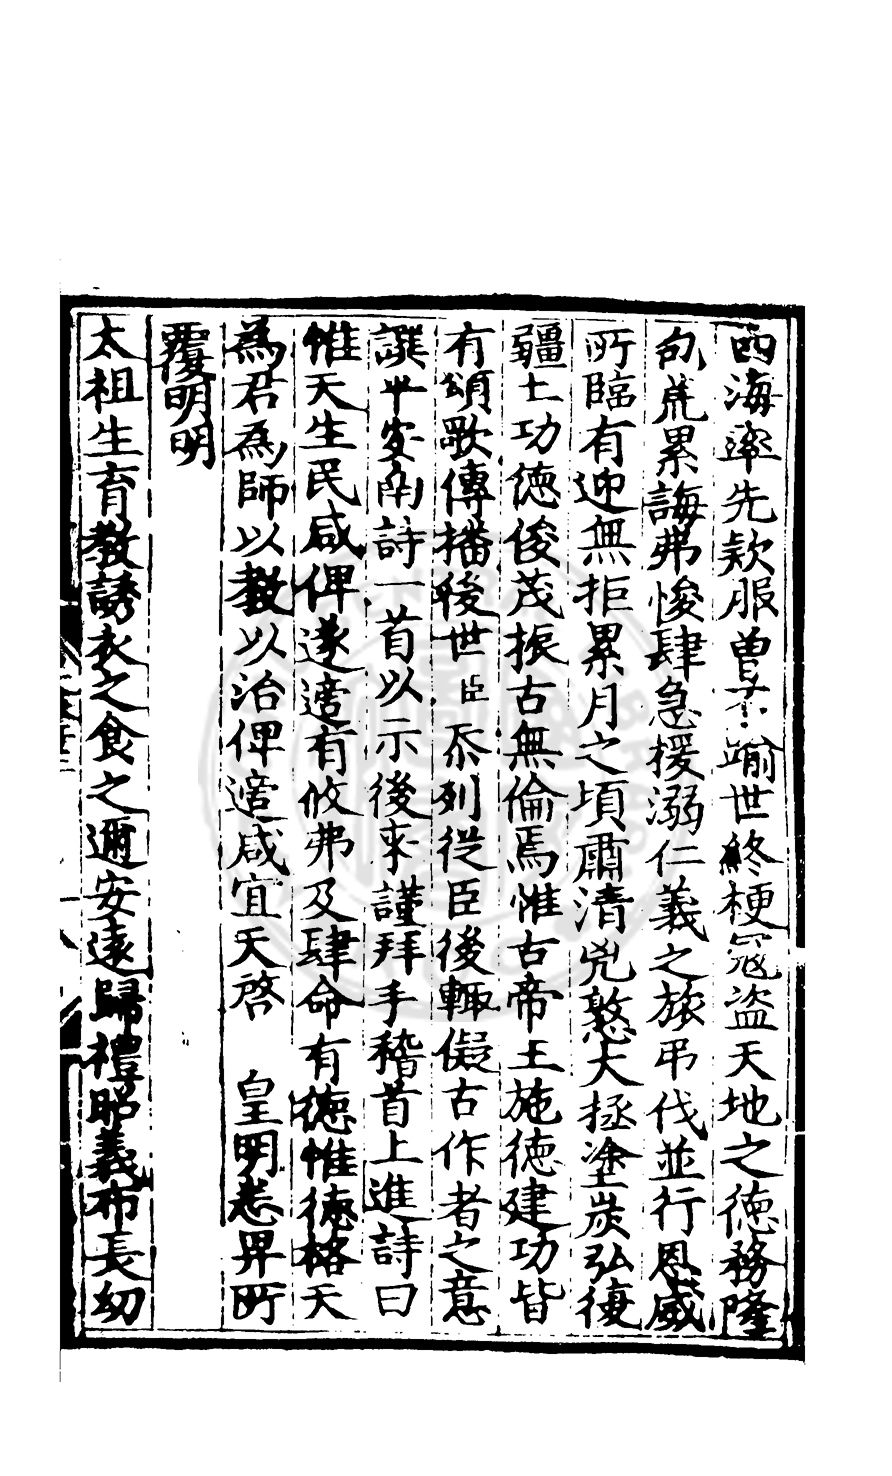 四海率先欵服曾不踰世終梗寇盜天地之德務隆
包荒累誨弗悛肆急援溺仁義之旅弔伐並行恩威
所臨有迎無拒累月之頃肅清兇憝大拯塗炭弘復
疆土功德俊茂振古無倫焉惟古帝王施德建功皆
有頌歌傳播後世臣忝列從臣後輙儗古作者之意
譔平安南詩一首以示後来謹拜手稽首上進詩曰
惟天生民咸俾遂適有攸弗及肆命有德惟德格天
為君為師以教以治俾適咸宜天啓　皇明悉畀所
覆明明
太祖生育教誘衣之食之邇安遠歸禮昭義布長幼